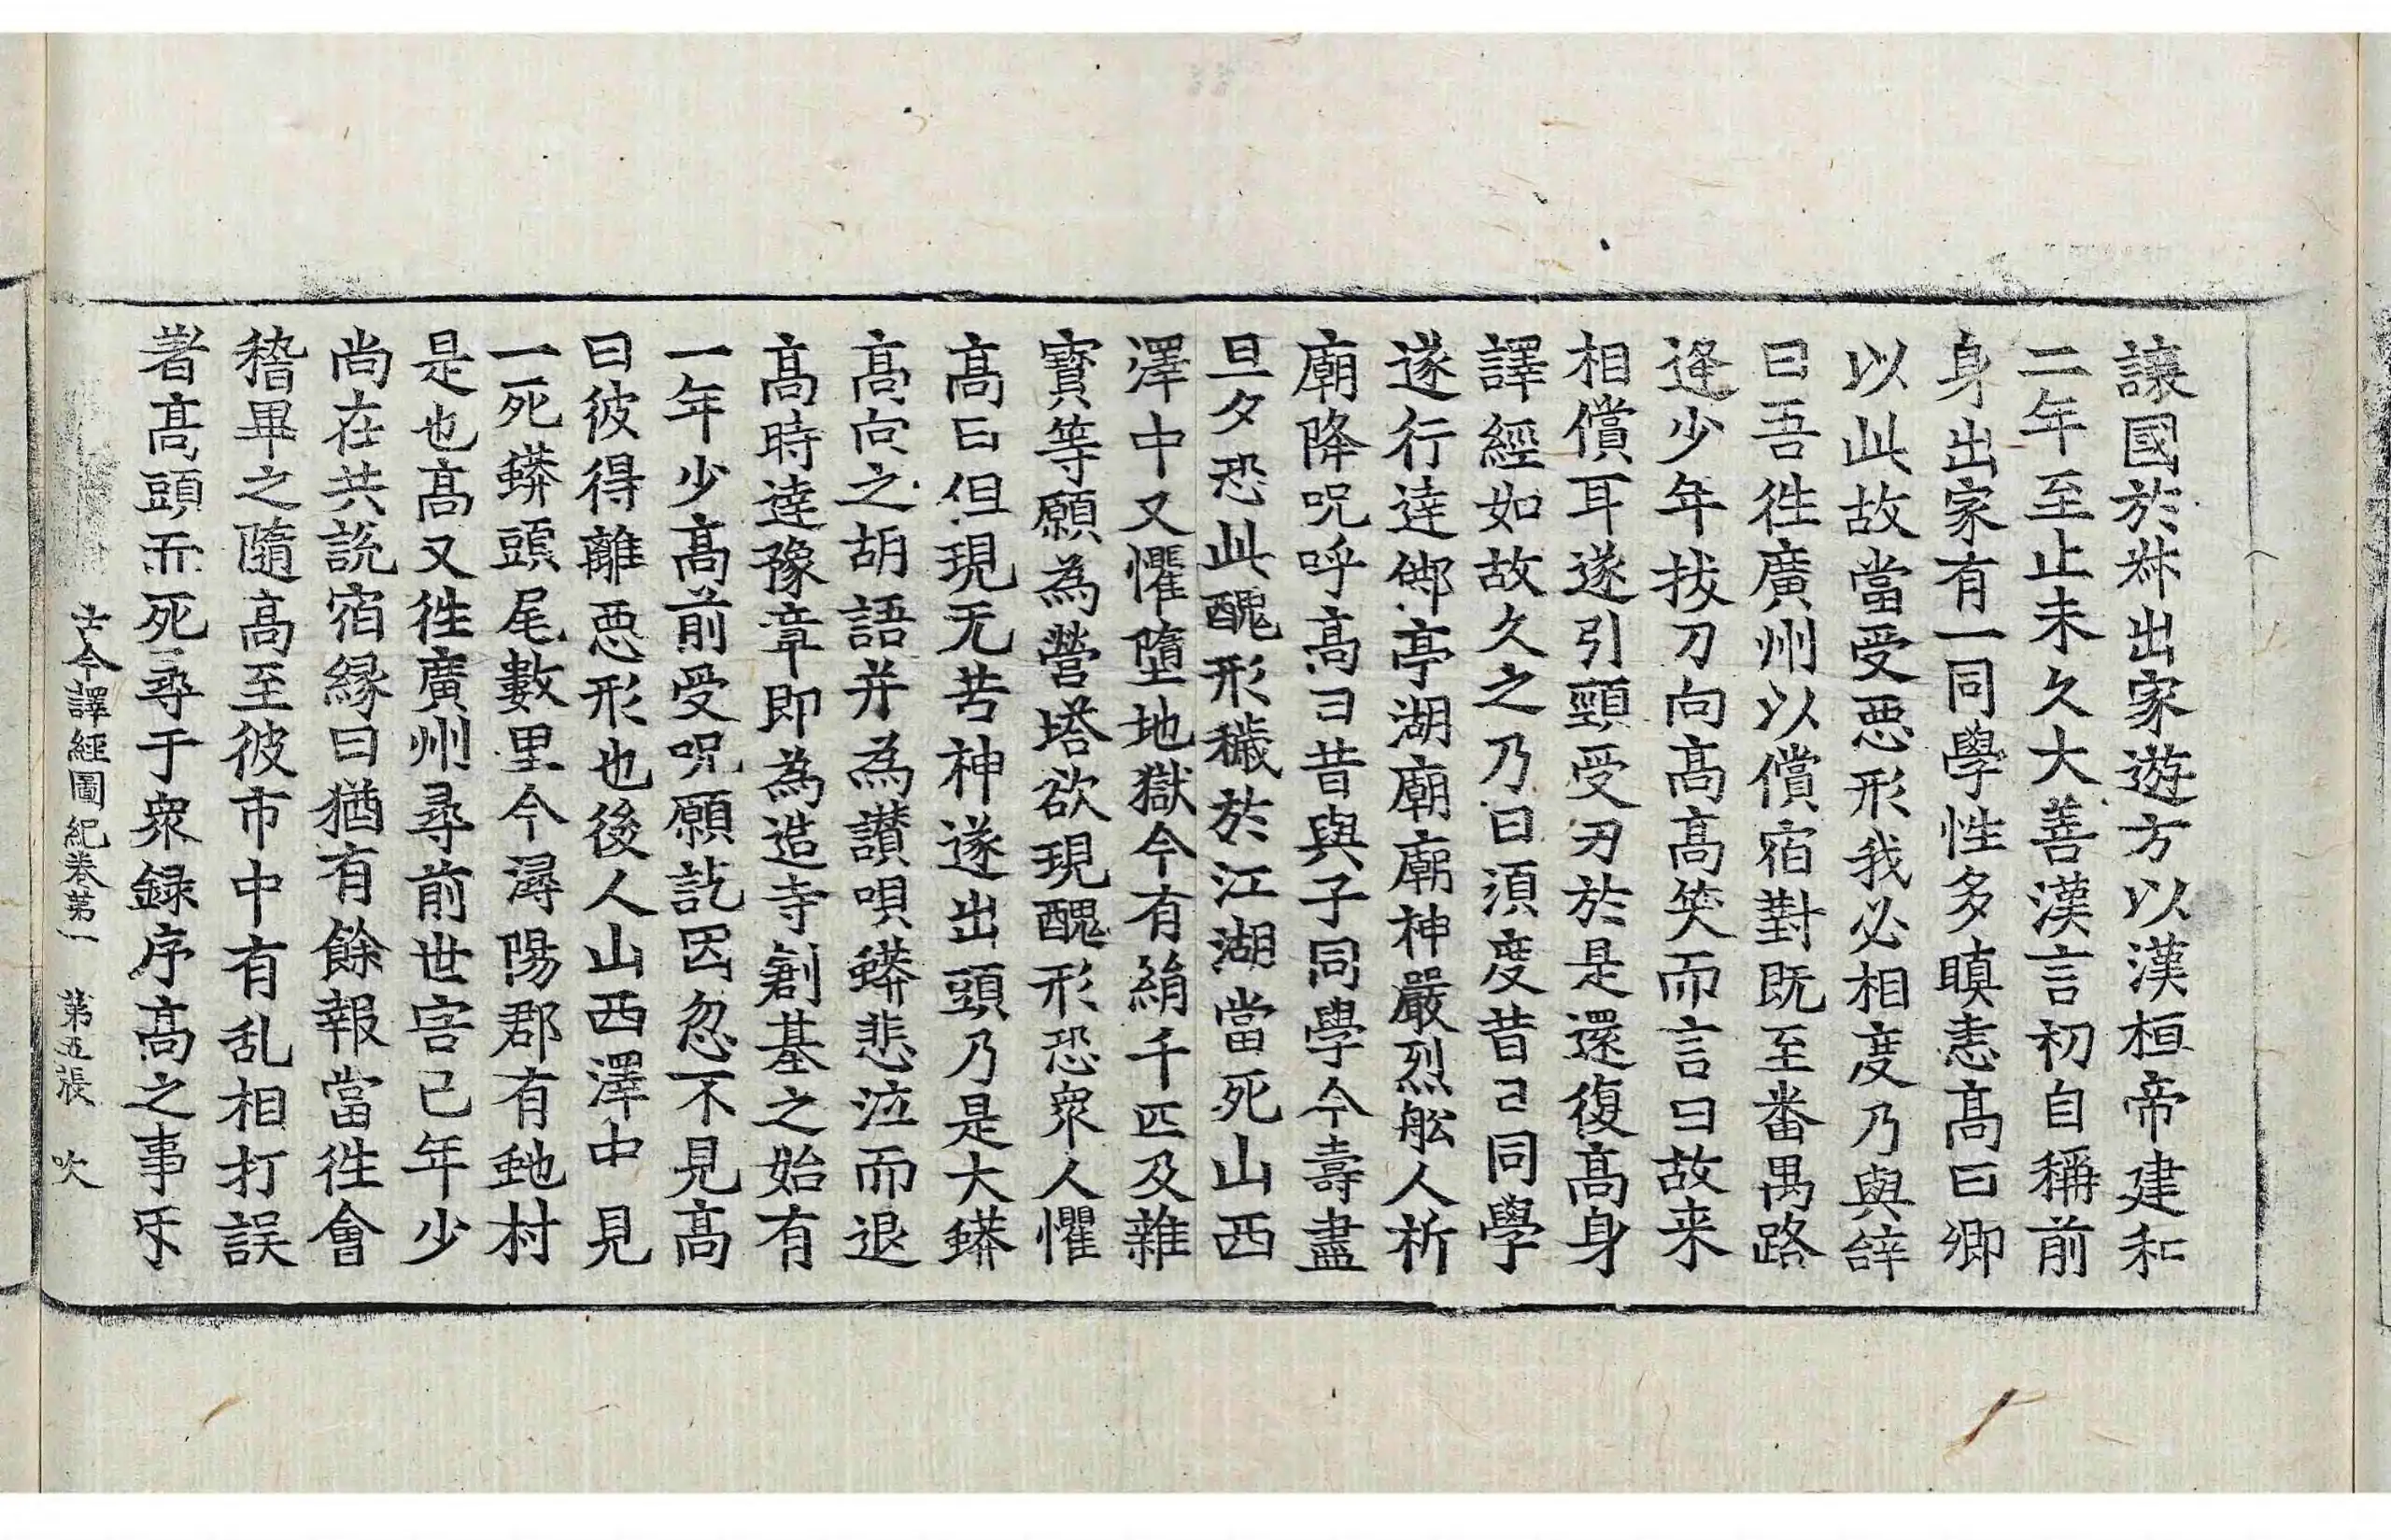 讓國於叔出家遊方以漢桓帝建和
二年至止未久大善漢言初自稱前
身出家有一同學性多瞋恚高曰卿
以此故當受惡形我必相度乃與辝
曰吾徃廣州以償宿對既至番禺路
逢少年拔刀向高高笑而言曰故来
相償耳遂引頸受刃於是還復高身
譯經如故久之乃曰須度昔己同學
遂行達䢼亭湖廟廟神嚴烈舩人祈
廟降呪呼高曰昔與子同學今壽盡
旦夕恐此醜形穢於江湖當死山西
澤中又懼墮地獄今有絹千匹及雜
寶等願為營塔欲現醜形恐衆人懼
高曰但現无苦神遂出頭乃是大蟒
高向之胡語并為讃唄蟒悲泣而退
高時達豫章即為造寺創基之始有
一年少高前受呪願訖因忽不見高
曰彼得離惡形也後人山西澤中見
一死蟒頭尾數里今潯陽郡有虵村
是也高又徃廣州尋前世害己年少
尚在共説宿縁曰猶有餘報當徃會
稽畢之隨高至彼市中有乱相打誤
著高頭而死尋于衆録序高之事牙
古今譯經圖紀卷第一 第五張 吹